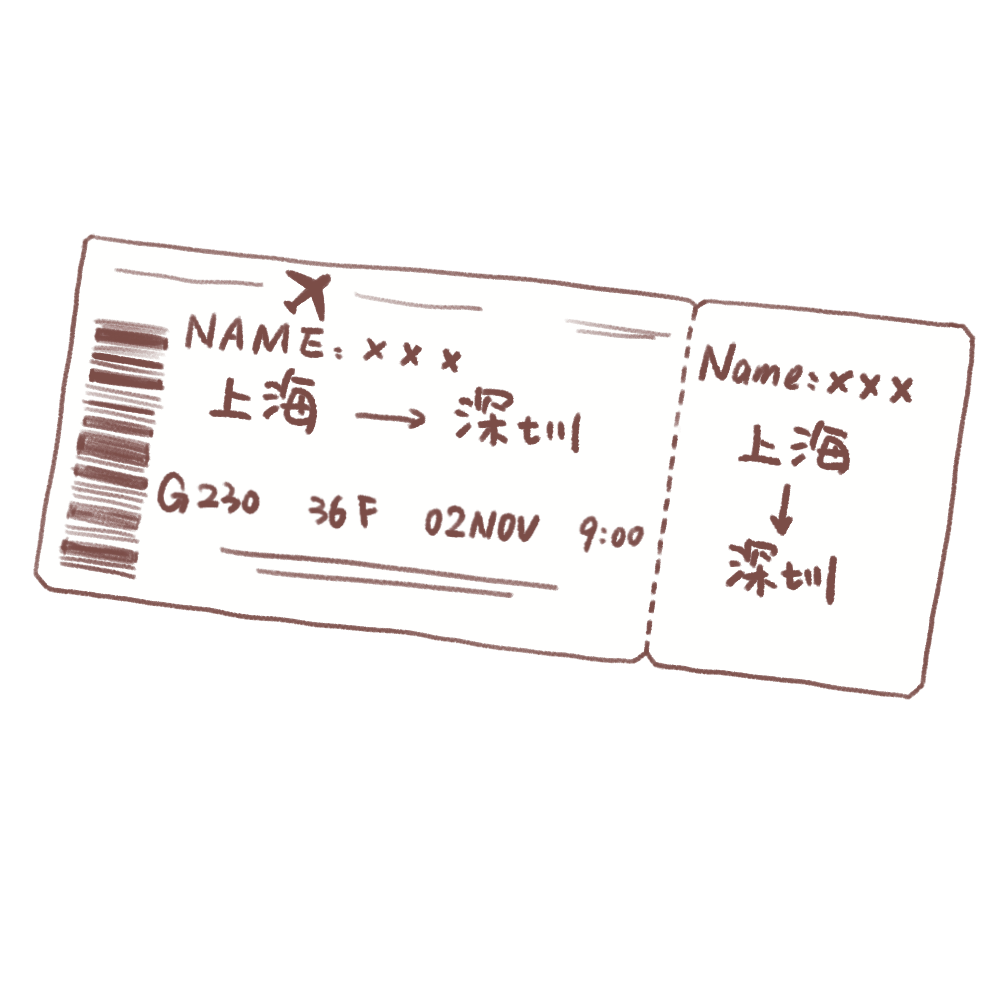 NAME: x x x
上海 → 深圳
G230 36F 02NOV 9:00
Name: x x x
上海
↓
深圳